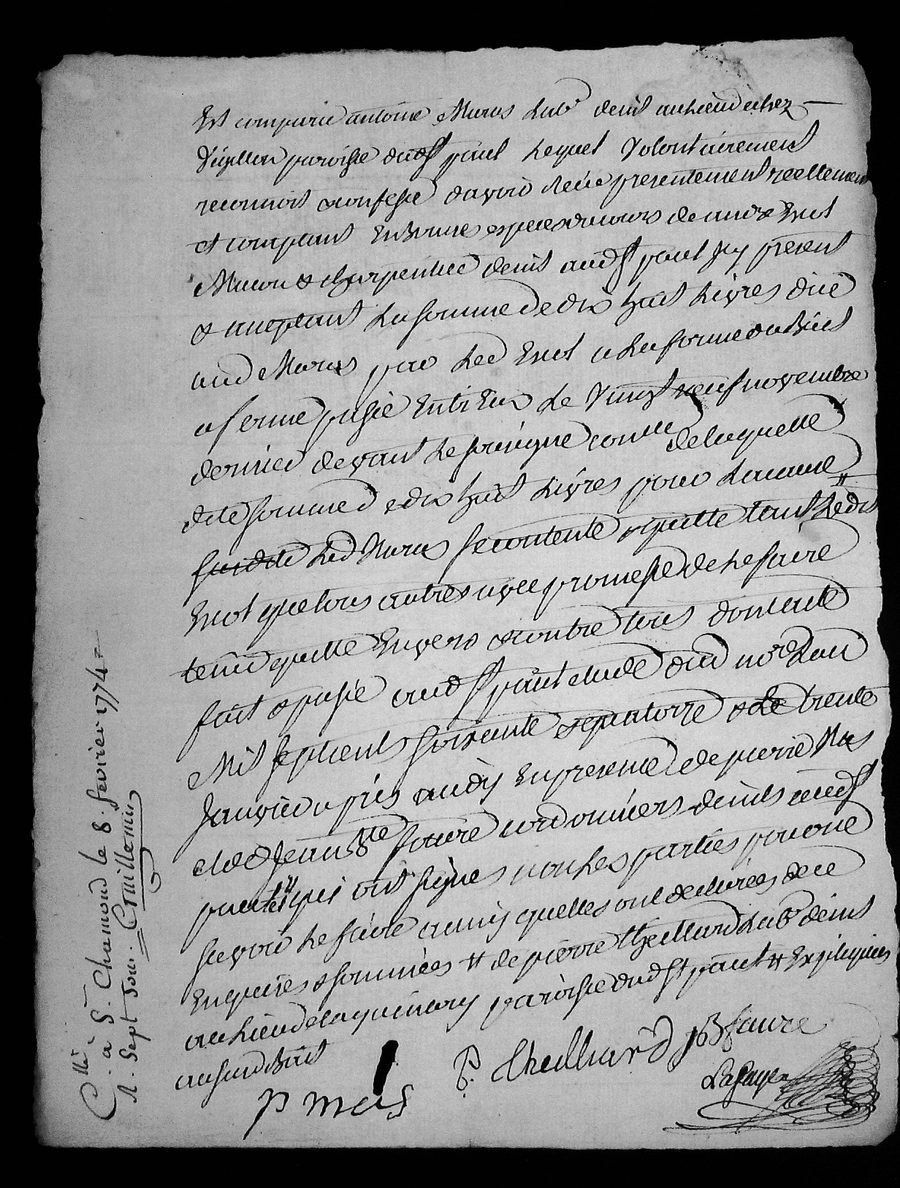 Est comparu antoine Maras Lab^r demt au lieu de chez
paroisse dudst paul Lequel Volontairement
reconnoit confesse davoir Reçu presentement reellement
et comptant En bonnes especes du cours de
Macon & charpentier demt audst paul Icy present
& acceptant La somme de dix huit Livres due
aud Maras par Led a La forme du Bail
a ferme passé Entr Eux Le Vingt neuf novembre
dernier devant Le soussigné de laquelle
dite somme de dix huit Livres pour La cause
Led Maras se contente & quitte tant Ledit
que tous autres avec promesse de Le faire
tenir quitte Envers & contre tous dont acte
fait & passé audst paul etude dud no^re Lan
Mil sept cent soixante & quatorze & Le trente
Janvier après midy En presence de pierre Mas
et de Jean B^te faure cordonniers demts audst
paul qui ont signés non Les parties pour ne
sçavoir Le faire ainsi quelles ont declarées de ce
Enquises & sommées # de pierre Theilliard Lab^r demt
au Lieu de paroisse dudst paul #
P. Theilliard JB faure
p mas
Lafayer
C^llé à S^t Chamond le 8. fevrier 1774 =
R. Sept sous. Guillemin